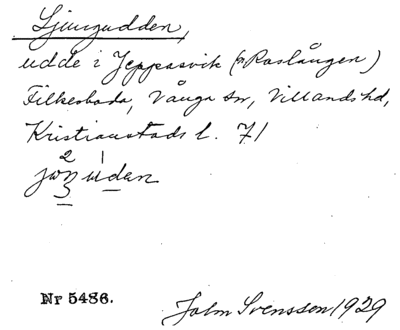 Ljungudden,
udde i Jeppasvik (i Raslången)
Filkesboda, Vånga sn, Villands hd,
Kristianstads l. 71
2 1
joŋuden
Nr 5486.
John Svensson 1929